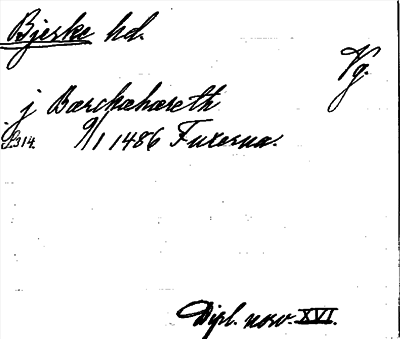 Bjerke hd.
Vg.
j Barckæhæreth
S. 314. 9/1 1486 Fuxerna.
Dipl. norv. XVI.